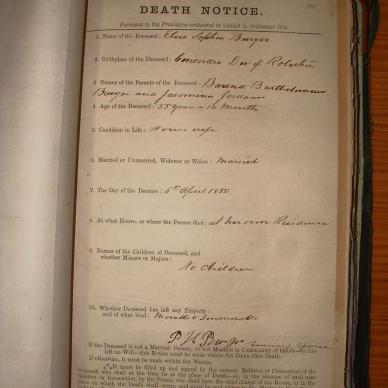 DEATH NOTICE.
Pursuant to the Provisions contained in Section 9, Ordinance 104.
1. Name of the Deceased: Elsie Sophia Burger
2. Birthplace of the Deceased: Div of Robertson
3 Names of the Parents of the Deceased: Barend Bartholomeus
Burger and Jacomina Jordaan
4. Age of the Deceased: 55 years 10 Months
5. Condition in Life: House wife
6. Married or Unmarried, Widower or Widow: Married
7. The Day of the Decease: 5th April 1888
8. At what House, or where the Person died: at her own Residence
9. Names of the Children of Deceased, and
whether Minors or Majors:
No Children
10. Whether Deceased has left any Property;
and of what kind: Movable & Immovable
P Burger surviving spouse
If the Deceased is not a Married Person, or not Married in Community of Goods—or has
left no Will—this Notice must be made within Six Days after Death.
If otherwise, it must be made within Six Weeks.
be filled up and signed by the nearest Relative or Connection of the
Deceased who shall at the time be at the place of Death—or, in the absence of such near
Relative or Connection, by the Person who shall have the chief charge of the House in, or the